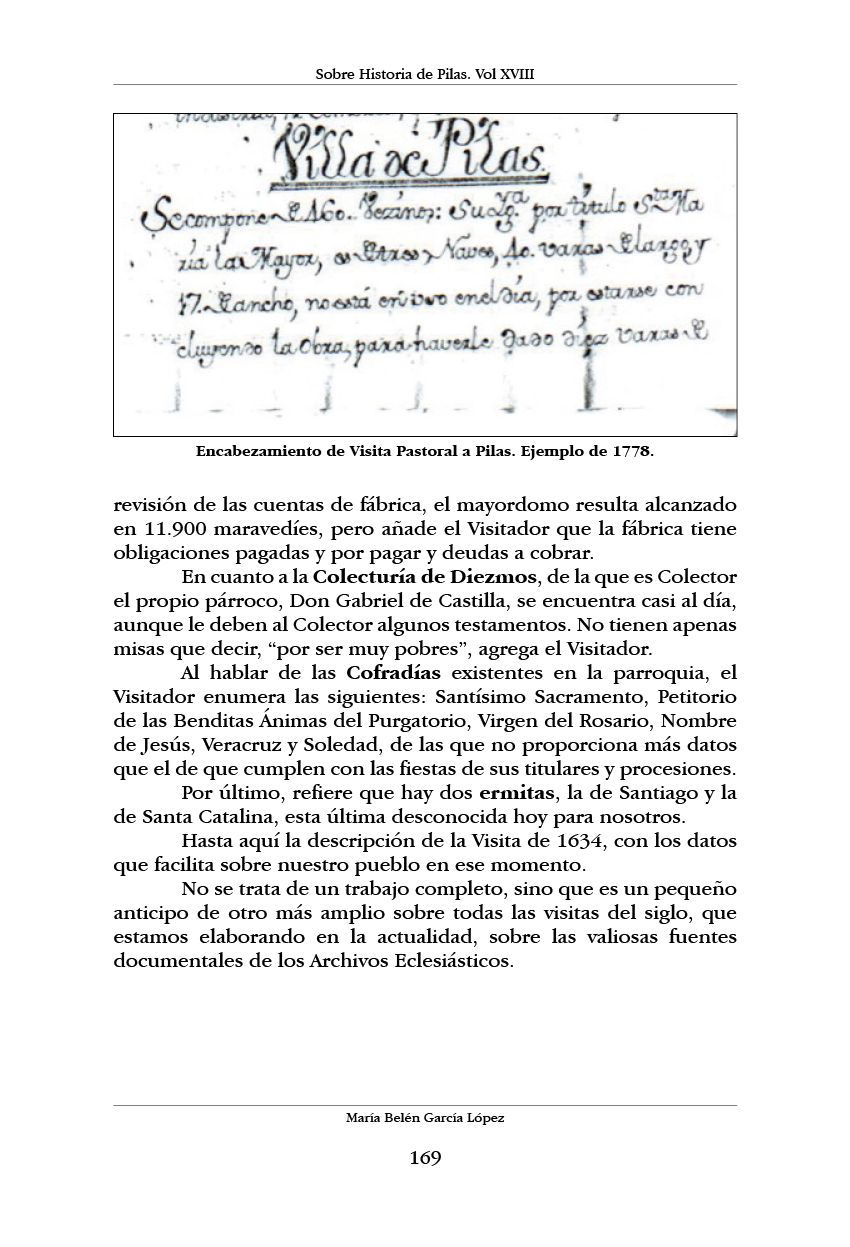 Sobre Historia de Pilas. Vol XVIII
Villa de Pilas.
Se compone de 460. Vezinos: Su Yg.ª por titulo S.ta Ma
ria la Mayor, es de tres Naves, 40. varas de largo, y
17. de ancho, no está en uso en el dia, por estarse con
cluyendo la Obra, para haverle dado diez varas de
Encabezamiento de Visita Pastoral a Pilas. Ejemplo de 1778.
revisión de las cuentas de fábrica, el mayordomo resulta alcanzado
en 11.900 maravedíes, pero añade el Visitador que la fábrica tiene
obligaciones pagadas y por pagar y deudas a cobrar.
En cuanto a la Colecturía de Diezmos, de la que es Colector
el propio párroco, Don Gabriel de Castilla, se encuentra casi al día,
aunque le deben al Colector algunos testamentos. No tienen apenas
misas que decir, “por ser muy pobres”, agrega el Visitador.
Al hablar de las Cofradías existentes en la parroquia, el
Visitador enumera las siguientes: Santísimo Sacramento, Petitorio
de las Benditas Ánimas del Purgatorio, Virgen del Rosario, Nombre
de Jesús, Veracruz y Soledad, de las que no proporciona más datos
que el de que cumplen con las fiestas de sus titulares y procesiones.
Por último, refiere que hay dos ermitas, la de Santiago y la
de Santa Catalina, esta última desconocida hoy para nosotros.
Hasta aquí la descripción de la Visita de 1634, con los datos
que facilita sobre nuestro pueblo en ese momento.
No se trata de un trabajo completo, sino que es un pequeño
anticipo de otro más amplio sobre todas las visitas del siglo, que
estamos elaborando en la actualidad, sobre las valiosas fuentes
documentales de los Archivos Eclesiásticos.
María Belén García López
169